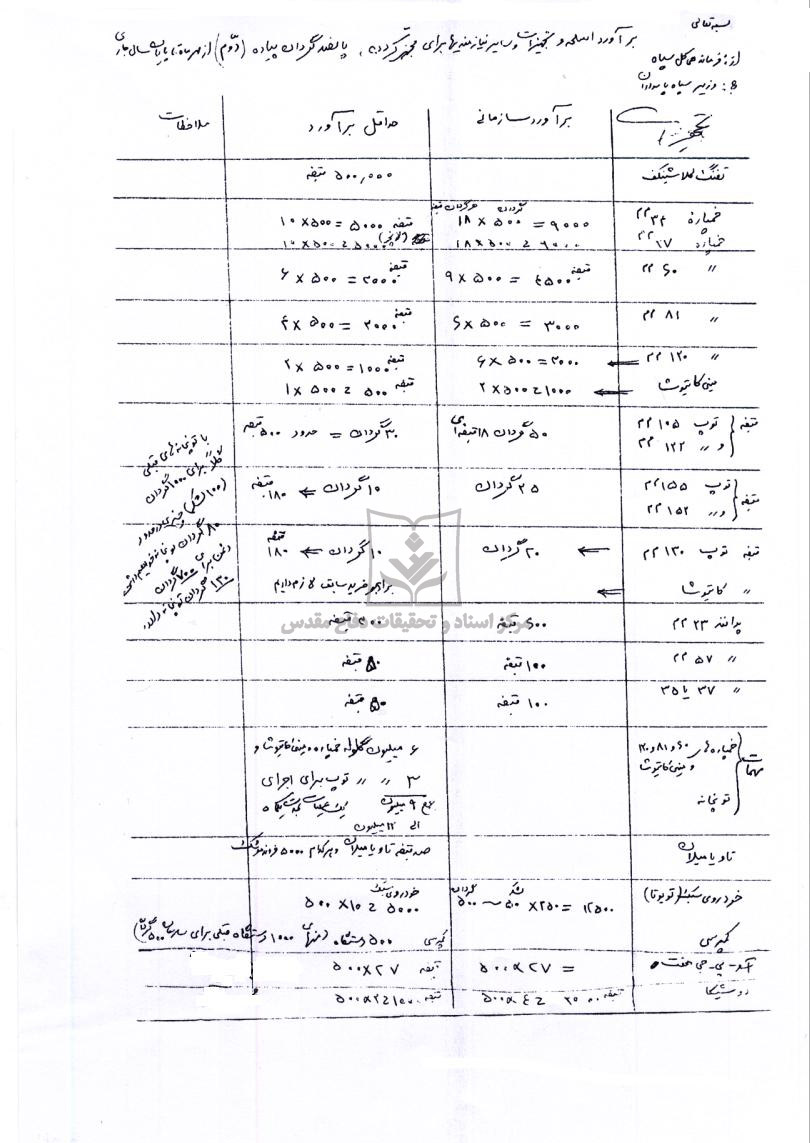 بسمه تعالی
برآورد اسلحه و تجهیزات و سایر نیازمندیها برای مجهز کردن پانصد گردان پیاده (دوّم) از مهرماه تا پایان سال جاری
از: فرمانده کل سپاه
به: وزیر سپاه پاسداران
تجهیزات برآورد سازمانی حداقل برآورد ملاحظات
تفنگ کلاشینکف ۵۰۰,۰۰۰ قبضه
گردان هر گردان قبضه
خمپاره ۳۴ م م ۱۸ × ۵۰۰ = ۹۰۰۰ ۱۰ × ۵۰۰ = ۵۰۰۰ قبضه
خمپاره ۳۷ م م ۱۸ × ۵۰۰ = ۹۰۰۰ ۱۰ × ۵۰۰ = ۵۰۰۰
〃 ۶۰ م م ۹ × ۵۰۰ = ۴۵۰۰ قبضه ۶ × ۵۰۰ = ۳۰۰۰ قبضه
〃 ۸۱ م م ۶ × ۵۰۰ = ۳۰۰۰ ۴ × ۵۰۰ = ۲۰۰۰ قبضه
〃 ۱۲۰ م م ← ۶ × ۵۰۰ = ۳۰۰۰ ۲ × ۵۰۰ = ۱۰۰۰ قبضه
مینی کاتیوشا ← ۲ × ۵۰۰ = ۱۰۰۰ ۱ × ۵۰۰ = ۵۰۰ قبضه
قبضه توپ ۱۰۵ م م ۵۰ گردان ۱۸ قبضه‌ای ۳۰ گردان = حدود ۵۰۰ قبضه
و 〃 ۱۲۲ م م
قبضه توپ ۱۵۵ م م ۲۵ گردان ۱۰ گردان ← ۱۸۰ قبضه
و 〃 ۱۵۲ م م
قبضه توپ ۱۳۰ م م ← ۲۰ گردان ۱۰ گردان ← ۱۸۰ قبضه
〃 کاتیوشا ← برابر خرید سابق لازم داریم
با توپخانه‌های قبلی
کلاً برای ۱۰۰۰ گردان
(۱۰۰ لشکر) چیزی در حدود
۸۰ گردان توپخانه خواهیم داشت
دشمن برای ۷۰۰ گردان
۱۳۰ گردان توپخانه دارد.
مرکز اسناد و تحقیقات دفاع مقدس
پدافند ۲۳ م م ۶۰۰ قبضه ۳۰۰ قبضه
〃 ۵۷ م م ۱۰۰ قبضه ۵۰ قبضه
〃 ۳۷ یا ۳۵ ۱۰۰ قبضه ۵۰ قبضه
مهمات خمپاره‌های ۶۰ و ۸۱ و ۱۲۰ ۶ میلیون گلوله خمپاره و مینی کاتیوشا و
و مینی کاتیوشا ۳ 〃 〃 توپ برای اجرای
توپخانه جمع ۹ میلیون
الی ۱۲ میلیون
تاو یا میلان صد قبضه تاو یا میلان و هر کدام ۵۰۰۰ فروند موشک
خودروی سبک (تویوتا) ۵۰۰ گردان ~ ۵۰ لشکر × ۲۵۰ = ۱۲۵۰۰ خودروی سبک ۵۰۰ × ۱۰ = ۵۰۰۰
کمپرسی کمپرسی ۵۰۰ دستگاه (منهای ۱۰۰۰ دستگاه قبلی برای سازمان ۵۰۰ گردان)
آر-پی-جی هفت ۵۰۰ × ۲۷ = ۵۰۰ × ۲۷ قبضه
دوشیکا